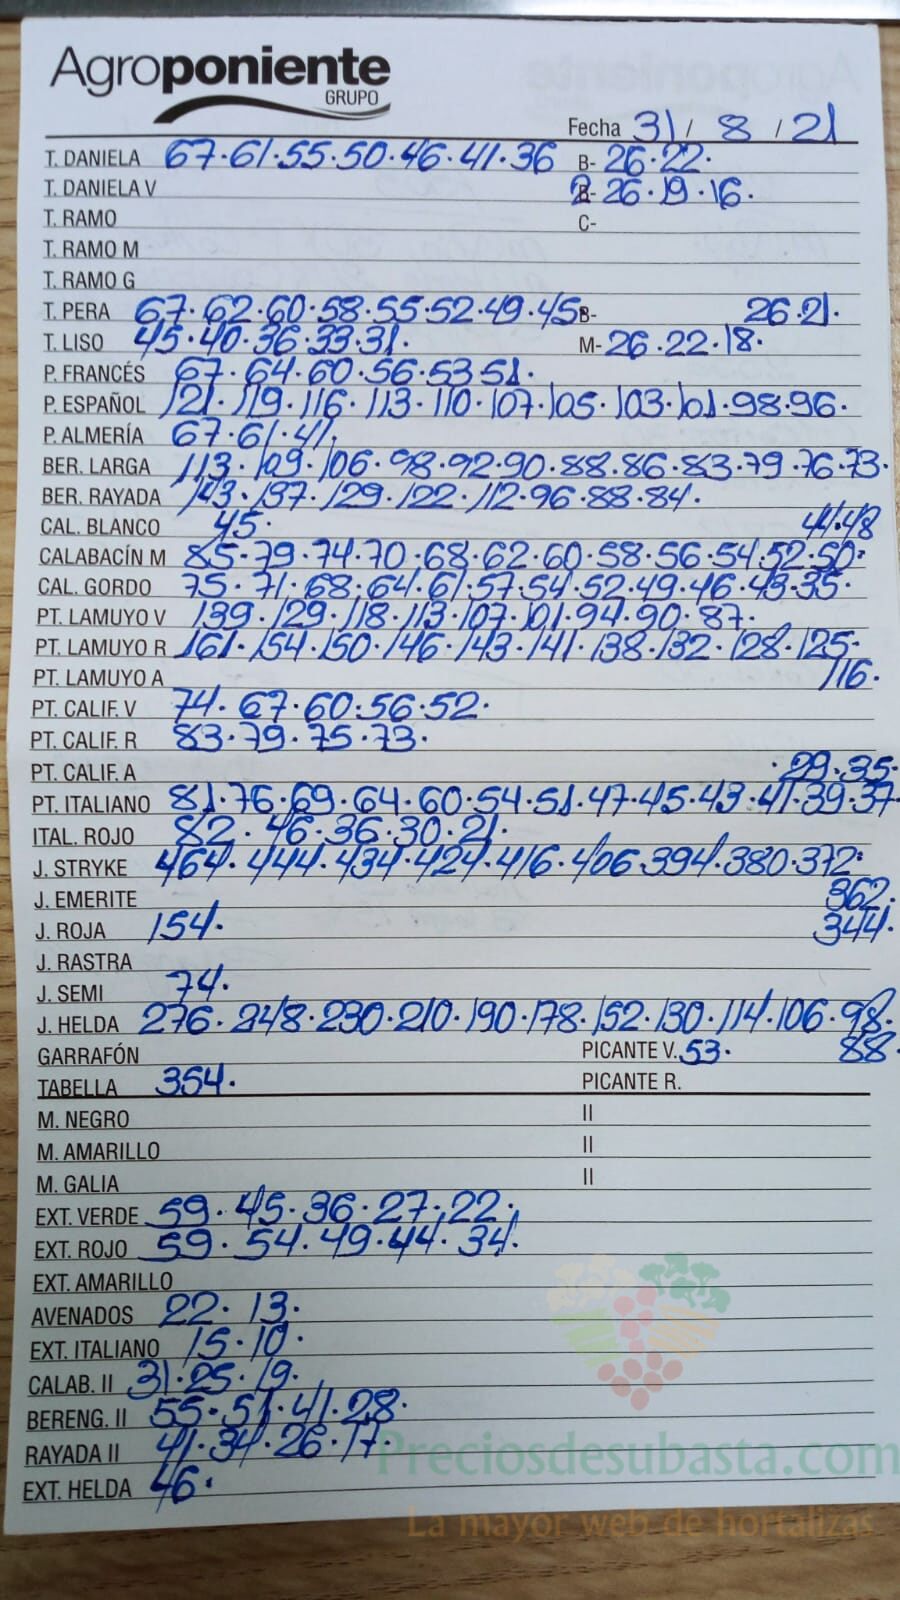 Agroponiente
GRUPO
Fecha 31 / 8 / 21
T. DANIELA 67·61·55·50·46·41·36 B- 26·22·
T. DANIELA V 26·19·16·
T. RAMO C-
T. RAMO M
T. RAMO G
T. PERA 67·62·60·58·55·52·49·45· B- 26·21·
T. LISO 45·40·36·33·31· M- 26·22·18·
P. FRANCÉS 67·64·60·56·53·51·
P. ESPAÑOL 121·119·116·113·110·107·105·103·101·98·96·
P. ALMERÍA 67·61·41·
BER. LARGA 113·109·106·98·92·90·88·86·83·79·76·73·
BER. RAYADA 143·137·129·122·112·96·88·84·
CAL. BLANCO 45· 44·48
CALABACÍN M 85·79·74·70·68·62·60·58·56·54·52·50·
CAL. GORDO 75·71·68·64·61·57·54·52·49·46·43·35·
PT. LAMUYO V 139·129·118·113·107·101·94·90·87·
PT. LAMUYO R 161·154·150·146·143·141·138·132·128·125·
PT. LAMUYO A 116·
PT. CALIF. V 74·67·60·56·52·
PT. CALIF. R 83·79·75·73·
PT. CALIF. A 29·35·
PT. ITALIANO 81·76·69·64·60·54·51·47·45·43·41·39·37·
ITAL. ROJO 82·46·36·30·21·
J. STRYKE 464·444·434·424·416·406·394·380·372·
J. EMERITE 362·
J. ROJA 154· 344·
J. RASTRA
J. SEMI 74·
J. HELDA 276·248·230·210·190·178·152·130·114·106·98·
GARRAFÓN PICANTE V. 53· 88·
TABELLA 354· PICANTE R.
M. NEGRO II
M. AMARILLO II
M. GALIA II
EXT. VERDE 59·45·36·27·22·
EXT. ROJO 59·54·49·44·34·
EXT. AMARILLO
AVENADOS 22·13·
EXT. ITALIANO 15·10·
CALAB. II 31·25·19·
BERENG. II 55·51·41·28·
RAYADA II 41·34·26·17·
Preciosdesubasta.com
EXT. HELDA 46·
La mayor web de hortalizas